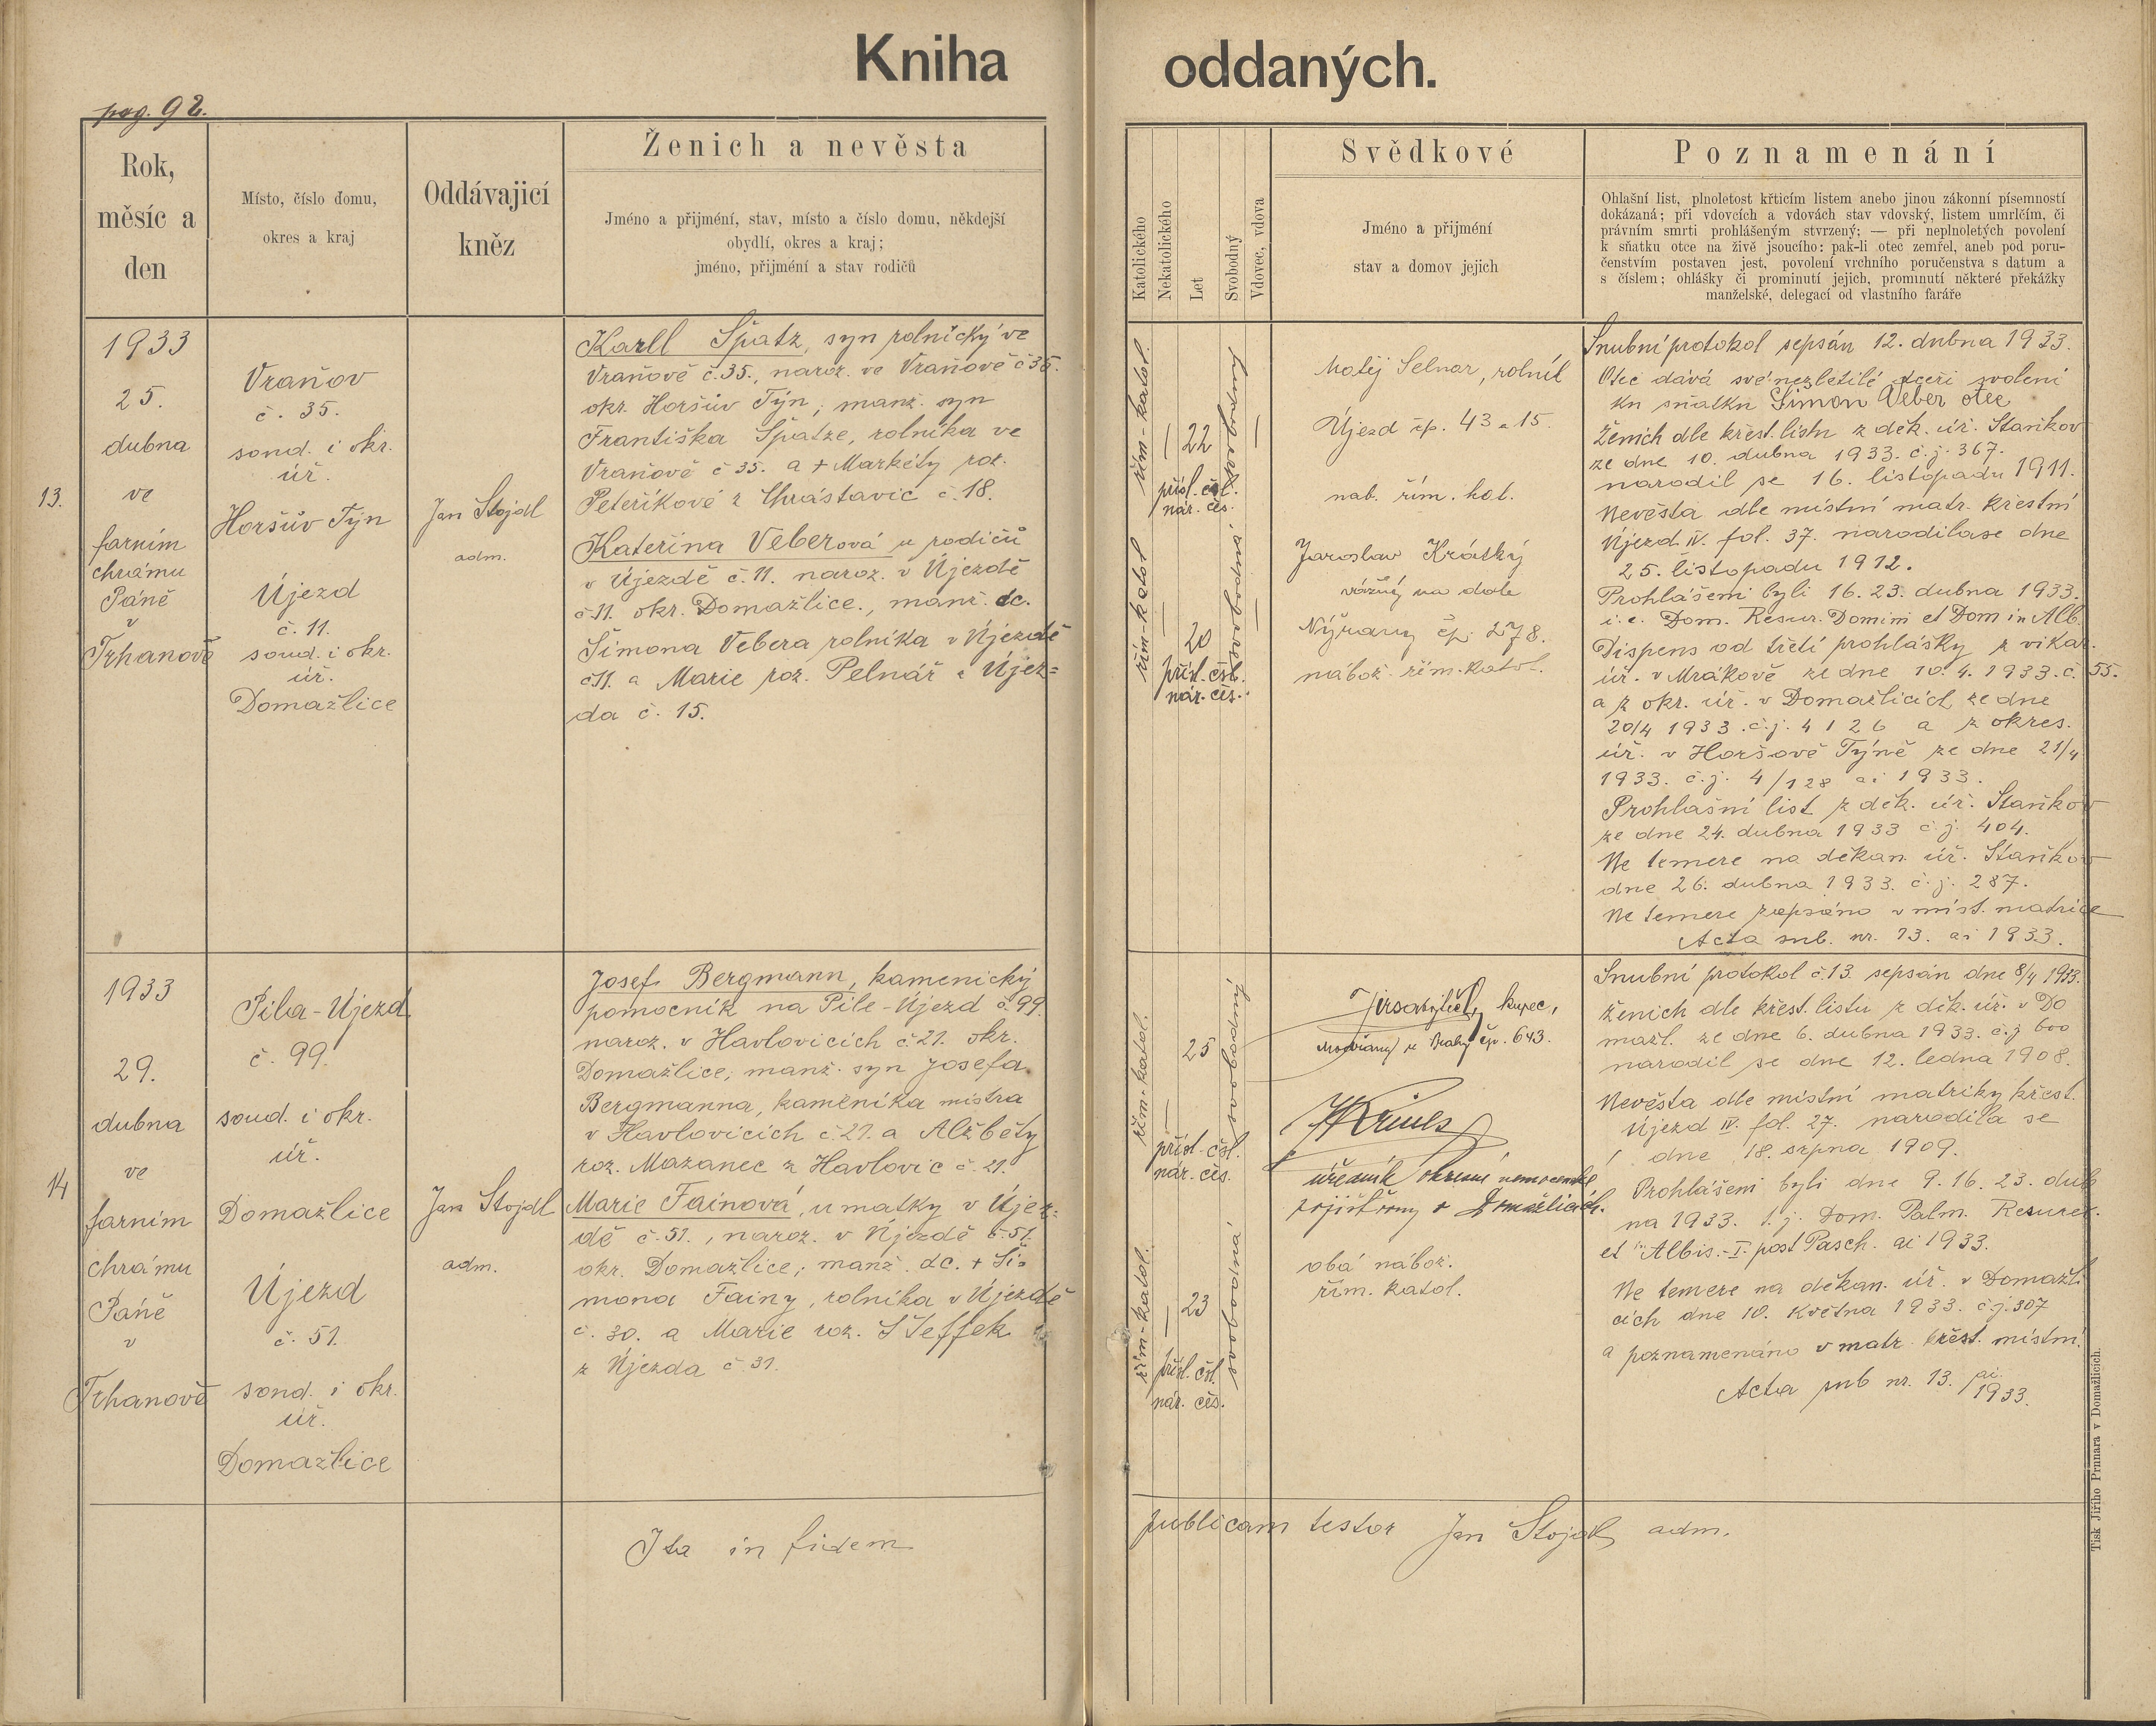 Kniha oddaných.
pag. 92.
Rok,
měsíc a
den
Místo, číslo domu,
okres a kraj
Oddávajicí
kněz
Ženich a nevěsta
Jméno a přijmění, stav, místo a číslo domu, někdejší
obydlí, okres a kraj;
jméno, přijmění a stav rodičů
Katolického
Nekatolického
Let
Svobodný
Vdovec, vdova
Svědkové
Jméno a přijmění
stav a domov jejich
Poznamenání
Ohlašní list, plnoletost křticím listem anebo jinou zákonní písemností
dokázaná; při vdovcích a vdovách stav vdovský, listem umrlčím, či
právním smrti prohlášeným stvrzený; — při neplnoletých povolení
k sňatku otce na živě jsoucího: pak-li otec zemřel, aneb pod poru-
čenstvím postaven jest, povolení vrchního poručenstva s datum a
s číslem; ohlášky či prominutí jejich, prominutí některé překážky
manželské, delegací od vlastního faráře
13.
1933
25.
dubna
ve
farním
chrámu
Páně
v
Trhanově
Vraňov
č. 35.
soud. i okr.
úř.
Horšův Týn
Újezd
č. 11.
soud. i okr.
úř.
Domažlice
Jan Stojdl
adm.
Karel Špatz, syn rolnický ve
Vraňově č. 35., naroz. ve Vraňově č 35.
okr. Horšův Týn; manž. syn
Františka Špatze, rolníka ve
Vraňově č 35. a + Markéty roz.
Peteříkové z Chrástavic č. 18.
Kateřina Veberová u rodičů
v Újezdě č. 11. naroz. v Újezdě
č 11. okr. Domažlice., manž. dc.
Šimona Vebera rolníka v Újezdě
č 11. a Marie roz. Pelnář z Újez=
da č. 15.
řím-katol.
22
přísl. čsl.
nár. čes.
svobodný
řím-katol
20
přísl. čsl.
nár. čes.
svobodná
Matěj Selnar, rolník
Újezd čp. 43 a 15.
nab. řím. kat.
Jaroslav Krátký
vážný na dole
Nýřany čp. 278.
nábož. řím. katol.
Snubní protokol sepsán 12. dubna 1933.
Otec dává své nezletilé dceři svolení
ku sňatku Šimon Veber otec
Ženich dle křest. listu z děk. úř. Staňkov
ze dne 10. dubna 1933. č.j. 367.
narodil se 16. listopadu 1911.
Nevěsta dle místní matr. křestní
Újezd IV. fol. 37. narodila se dne
25. listopadu 1912.
Prohlášeni byli 16. 23. dubna 1933.
i. e. Dom. Resur. Domini et Dom in Alb.
Dispens od třetí prohlášky z vikar.
úř. v Mrákově ze dne 10. 4. 1933. č. 55.
a z okr. úř. v Domažlicích ze dne
20/4 1933. č.j. 4126 a z okres.
úř. v Horšově Týně ze dne 21/4
1933. č.j. 4/128 ai 1933.
Prohlašní list z děk. úř. Staňkov
ze dne 24. dubna 1933 č.j. 404.
Ne temere na děkan. úř. Staňkov
dne 26. dubna 1933. č.j. 287.
Ne temere zapsáno v míst. matrice
Acta sub. nr. 13. ai 1933.
14
1933
29.
dubna
ve
farním
chrámu
Páně
v
Trhanově
Pila-Újezd
č. 99.
soud. i okr.
úř.
Domažlice
Újezd
č. 51.
soud. i okr.
úř.
Domažlice
Jan Stojdl
adm.
Josef Bergmann, kamenický
pomocník na Pile-Újezd č. 99.
naroz. v Havlovicích č. 21. okr.
Domažlice; manž. syn Josefa
Bergmanna, kameníka mistra
v Havlovicích č. 21. a Alžběty
roz. Mazanec z Havlovic č. 21.
Marie Fainová, u matky v Újez-
dě č. 51., naroz. v Újezdě č. 51.
okr. Domažlice; manž. dc. + Ši=
mona Fainy, rolníka v Újezdě
č. 30. a Marie roz. Šteffek
z Újezda č. 31.
řím-katol.
25
přísl. čsl.
nár. čes.
svobodný
řím-katol.
23
přísl. čsl.
nár. čes.
svobodná
kupec,
Modřany u Prahy čp. 643.
úředník okresní nemocenské
pojišťovny v Domažlicích.
obá nábož.
řím. katol.
Snubní protokol č. 13. sepsán dne 8/4 1933.
Ženich dle křest. listu z děk. úř. v Do
mažl. ze dne 6. dubna 1933. č.j. 600
narodil se dne 12. ledna 1908.
Nevěsta dle místní matriky křest.
Újezd IV. fol. 27. narodila se
dne 18. srpna 1909.
Prohlášeni byli dne 9. 16. 23. dub
na 1933. t. j. Dom. Palm. Resurec.
et in Albis.-I. post Pasch. ai 1933.
Ne temere na děkan. úř. v Domažli
cích dne 10. května 1933. č.j. 307
a poznamenáno v matr. křest. místní.
Acta sub nr. 13. ai 1933.
Ita in fidem publicam testor Jan Stojdl adm.
Tisk Jiřího Prunara v Domažlicích.